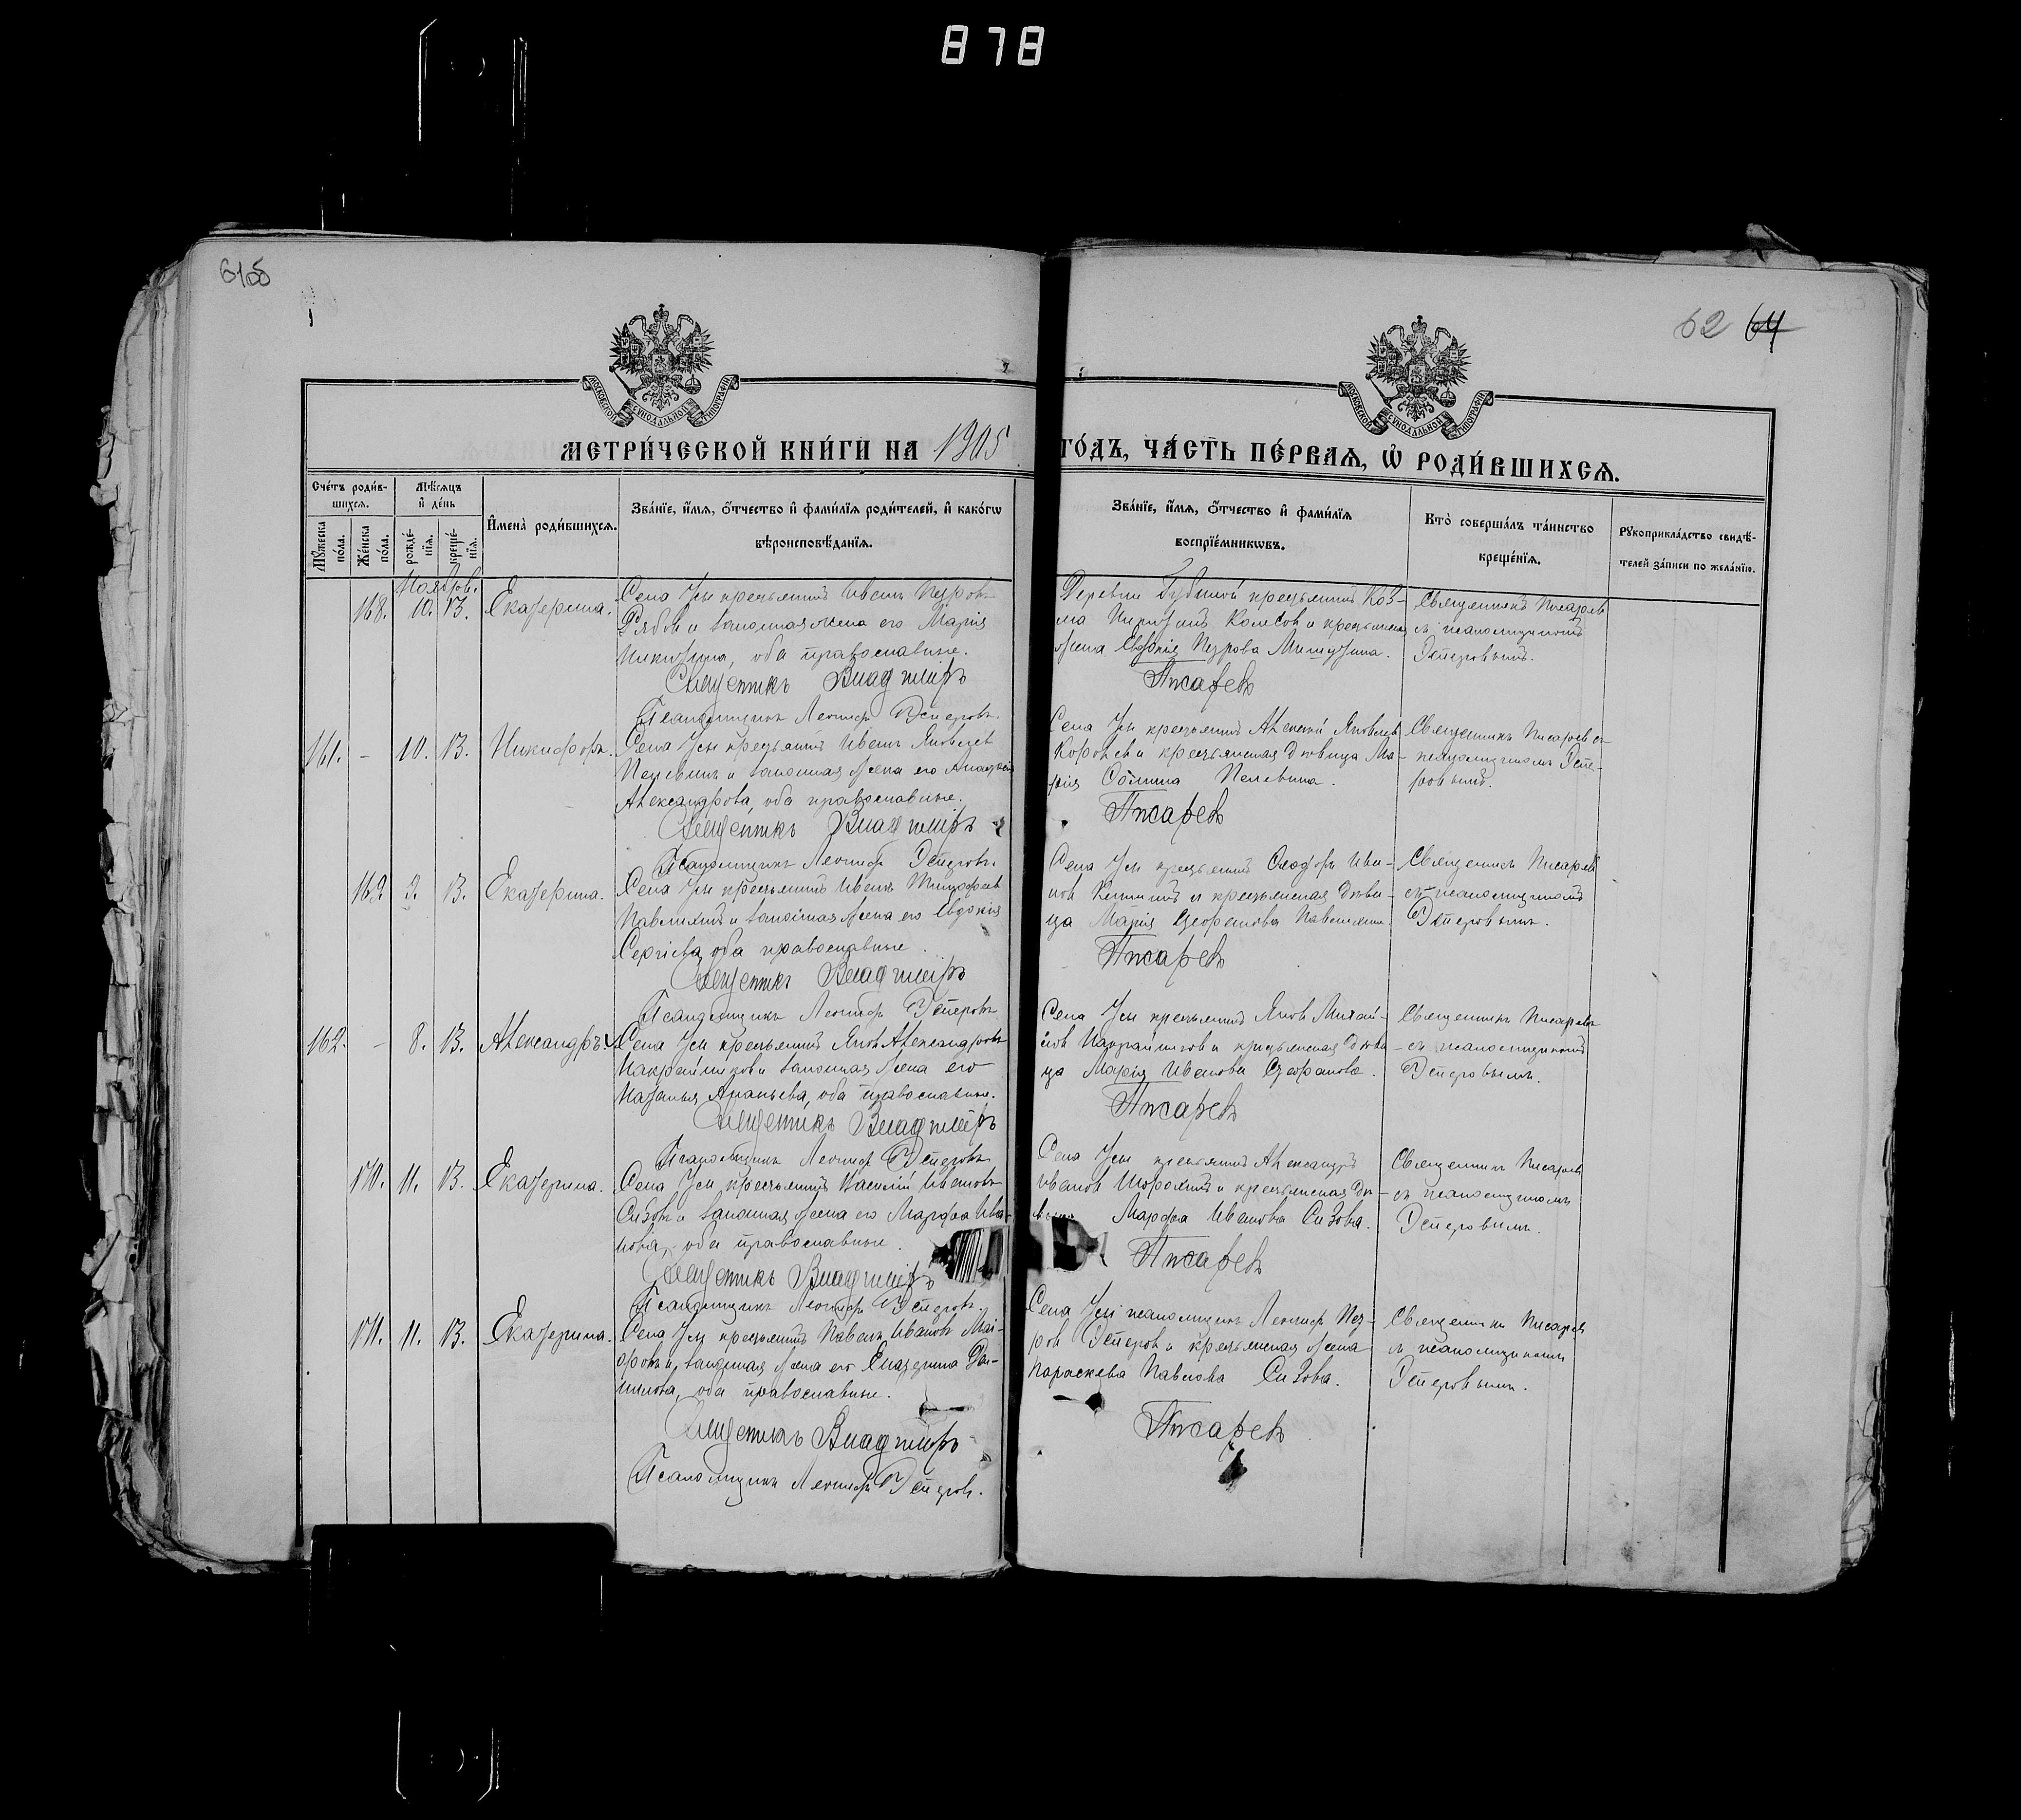 878
61об
62 64
МОСКОВСКОЙ СѴНОДАЛЬНОЙ ТИПОГРАФІИ
МОСКОВСКОЙ СѴНОДАЛЬНОЙ ТИПОГРАФІИ
МЕТРИ́ЧЕСКОЙ КНИ́ГИ НА 1905
ГО́ДЪ, ЧА́СТЬ ПЕ́РВАѦ, Ѡ҆ РОДИ́ВШИХСѦ.
Сче́тъ роди́в-
шихсѧ.
Мѣ́сѧцъ
и҆ де́нь
Мꙋ́жеска
по́ла.
Же́нска
по́ла.
рожде́-
нїѧ.
креще́-
нїѧ.
И҆мена̀ роди́вшихсѧ.
Зва́нїе, и҆́мѧ, ѻ҆́тчество и҆ фами́лїѧ роди́телей, и҆ како́гѡ
вѣроисповѣ́данїѧ.
Зва́нїе, и҆́мѧ, ѻ҆́тчество и҆ фами́лїѧ
воспрїе́мникѡвъ.
Кто̀ соверша́лъ та́инство
креще́нїѧ.
Рꙋкоприкла́дство свидѣ́-
телей за́писи по жела́нїю.
Ноябрь.
168. 10. 13. Екатерина.
Села Усы крестьянинъ Иванъ Петровъ
Рябов и законная жена его Марія
Никитина, оба православные.
Священникъ Владиміръ
Псаломщикъ Леонидъ Эсперовъ.
Деревни Губиной крестьянинъ Коз-
ма Никитинъ Колесов и крестьянская
жена Евдокія Петрова Мишутина.
Писаревъ
Священникъ Писарев
съ псаломщикомъ
Эсперовымъ.
161. - 10. 13. Никифоръ.
Села Усы крестьянинъ Иванъ Яковлев
Пелевинъ и законная жена его Анастасія
Александрова, оба православные.
Священникъ Владиміръ
Псаломщикъ Леонидъ Эсперовъ.
Села Усы крестьянинъ Алексѣй Яковлев
и крестьянская дѣвица Ма-
рія Пелевина.
Писаревъ
Священникъ Писарев съ
псаломщикомъ Эспе-
ровымъ.
169 9. 13. Екатерина.
Села Усы крестьянинъ Иванъ Тимофеев
Павлихинъ и законная жена его Евдокія
Сергіева, оба православные.
Священникъ Владиміръ
Псаломщикъ Леонидъ Эсперовъ
Села Усы крестьянинъ Ѳеодоръ Ива-
нов и крестьянская дѣви-
ца Марія Стефанова Павлихина.
Писаревъ
Священникъ Писарев
съ псаломщикомъ
Эсперовымъ.
162. - 8. 13. Александръ.
Села Усы крестьянинъ Яков Александров
и законная жена его
Наталья Ананьева, оба православные.
Священникъ Владиміръ
Псаломщикъ Леонидъ Эсперовъ
Села Усы крестьянинъ Яков Михай-
лов и крестьянская дѣви-
ца Марія Иванова Стефанова.
Писаревъ
Священникъ Писарев
съ псаломщикомъ
Эсперовымъ.
170. 11. 13. Екатерина.
Села Усы крестьянинъ Василій Иванов
Сизов и законная жена его Марфа Ива-
нова, оба православные.
Священникъ Владиміръ
Псаломщикъ Леонидъ Эсперовъ.
Села Усы крестьянинъ Александръ
Иванов и крестьянская дѣ-
вица Марфа Иванова Сизова.
Писаревъ
Священникъ Писарев
съ псаломщикомъ
Эсперовымъ.
171. 11. 13. Екатерина.
Села Усы крестьянинъ Павелъ Иванов Май-
оров и законная жена его Екатерина Да-
нилова, оба православные.
Священникъ Владиміръ
Псаломщикъ Леонидъ Эсперовъ.
Села Усы псаломщикъ Леонидъ Пет-
ров Эсперов и крестьянская жена
Параскева Павлова Сизова.
Писаревъ
Священникъ Писарев
съ псаломщикомъ
Эсперовымъ.